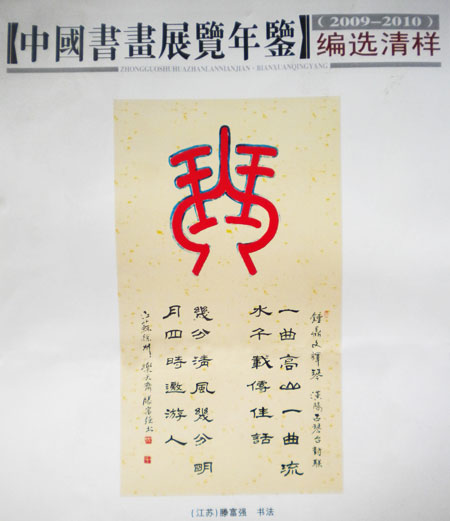 【中國書畫展覽年鑒】
（2009-2010）
编选清样
ZHONGGUOSHUHUAZHANLANNIANJIAN · BIANXUANQINGYANG
琴
鍾鼎文釋琴 漢陽古琴台對联
一曲高山一曲流
水千載傳佳話
幾分清風幾分明
月四時邀游人
(江苏)滕富强 书法